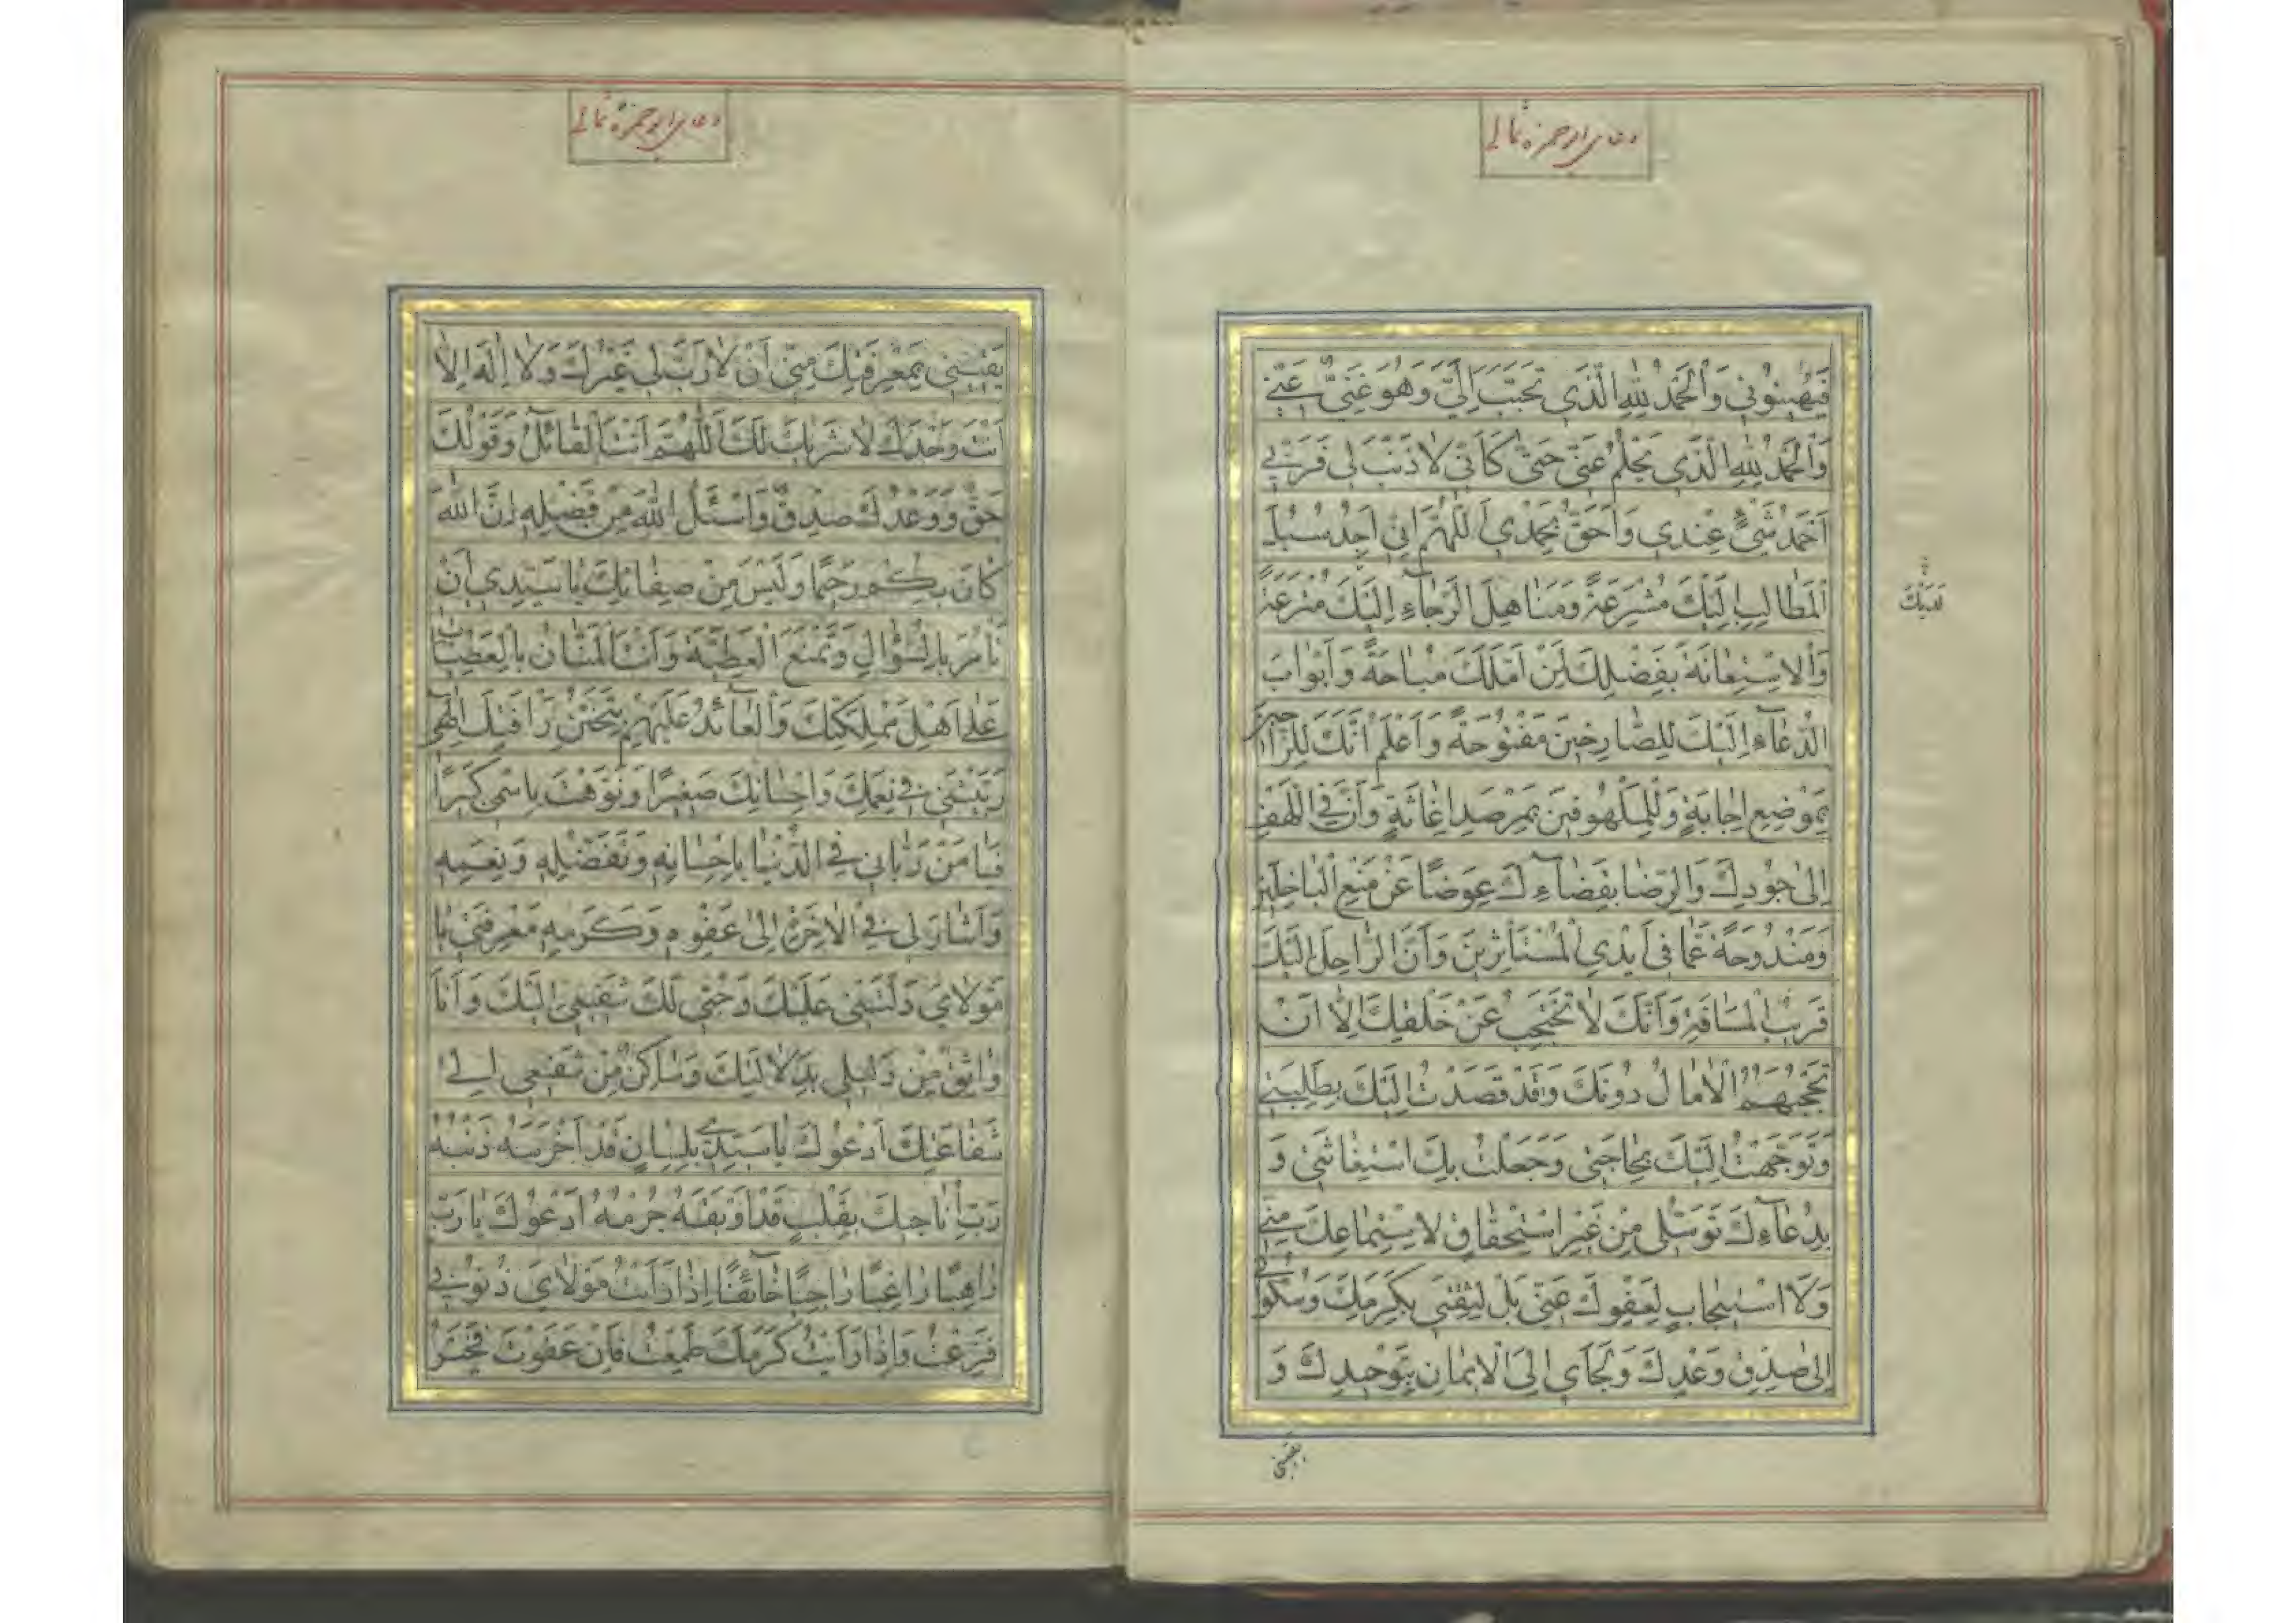 دعای ابوحمزه ثمالی
فَيُهينُونى وَالْحَمْدُ لِلّٰهِ الَّذى تَحَبَّبَ اِلَىَّ وَهُوَ غَنِىٌّ عَنّى
وَالْحَمْدُ لِلّٰهِ الَّذى يَحْلُمُ عَنّى حَتّىٰ كَاَنّى لاٰ ذَنْبَ لى فَرَبّى
اَحْمَدُ شَىْءٍ عِنْدى وَاَحَقُّ بِحَمْدى اَللّٰهُمَّ اِنّى اَجِدُ سُبُلَ
الْمَطٰالِبِ اِلَيْكَ مُشْرَعَةً وَمَنٰاهِلَ الرَّجٰآءِ اِلَيْكَ مُتْرَعَةً
لَدَيْكَ
وَالْاِسْتِعٰانَةَ بِفَضْلِكَ لِمَنْ اَمَّلَكَ مُبٰاحَةً وَاَبْوٰابَ
الدُّعٰآءِ اِلَيْكَ لِلصّٰارِخينَ مَفْتُوحَةً وَاَعْلَمُ اَنَّكَ لِلرّٰاجينَ
بِمَوْضِعِ اِجٰابَةٍ وَلِلْمَلْهُوفينَ بِمَرْصَدِ اِغٰاثَةٍ وَاَنَّ فِى اللَّهْفِ
اِلىٰ جُودِكَ وَالرِّضٰا بِقَضٰآءِكَ عِوَضًا عَنْ مَنْعِ الْبٰاخِلينَ
وَمَنْدُوحَةً عَمّٰا فى اَيْدِى الْمُسْتَأْثِرينَ وَاَنَّ الرّٰاحِلَ اِلَيْكَ
قَريبُ الْمَسٰافَةِ وَاَنَّكَ لاٰ تَحْتَجِبُ عَنْ خَلْقِكَ اِلاّٰ اَنْ
تَحْجُبَهُمُ الْاٰمٰالُ دُونَكَ وَقَدْ قَصَدْتُ اِلَيْكَ بِطَلِبَتى
وَتَوَجَّهْتُ اِلَيْكَ بِحٰاجَتى وَجَعَلْتُ بِكَ اسْتِغٰاثَتى وَ
بِدُعٰآءِكَ تَوَسُّلى مِنْ غَيْرِ اسْتِحْقٰاقٍ لِاسْتِمٰاعِكَ مِنّى
وَلاَ اسْتيجٰابٍ لِعَفْوِكَ عَنّى بَلْ لِثِقَتى بِكَرَمِكَ وَسُكُونى
اِلىٰ صِدْقِ وَعْدِكَ وَلَجَاىَ اِلَى الْايمٰانِ بِتَوْحيدِكَ وَ
يَقينى
دعای ابوحمزه ثمالی
يَقينى بِمَعْرِفَتِكَ مِنّى اَنْ لاٰ رَبَّ لى غَيْرُكَ وَلاٰ اِلٰهَ اِلاّٰ
اَنْتَ وَحْدَكَ لاٰ شَريكَ لَكَ اَللّٰهُمَّ اَنْتَ الْقٰآئِلُ وَقَوْلُكَ
حَقٌّ وَوَعْدُكَ صِدْقٌ وَاسْئَلُ اللّٰهَ مِنْ فَضْلِهِ اِنَّ اللّٰهَ
كٰانَ بِكُمْ رَحيمًا وَلَيْسَ مِنْ صِفٰاتِكَ يٰا سَيِّدى اَنْ
تَأْمُرَ بِالسُّؤٰالِ وَتَمْنَعَ الْعَطِيَّةَ وَاَنْتَ الْمَنّٰانُ بِالْعَطِيّٰاتِ
عَلىٰ اَهْلِ مَمْلِكَتِكَ وَالْعٰآئِدُ عَلَيْهِمْ بِتَحَنُّنِ رَاْفَتِكَ اِلٰهى
رَبَّيْتَنى فى نِعَمِكَ وَاِحْسٰانِكَ صَغيرًا وَنَوَّهْتَ بِاسْمى كَبيرًا
فَيٰا مَنْ رَبّٰانى فِى الدُّنْيٰا بِاِحْسٰانِهِ وَتَفَضُّلِهِ وَنِعَمِهِ
وَاَشٰارَ لى فِى الْاٰخِرَةِ اِلىٰ عَفْوِهِ وَكَرَمِهِ مَعْرِفَتى يٰا
مَوْلاٰىَ دَلَّتْنى عَلَيْكَ وَحُبّى لَكَ شَفيعى اِلَيْكَ وَاَنَا
وٰاثِقٌ مِنْ دَليلى بِدَلاٰلَتِكَ وَسٰاكِنٌ مِنْ شَفيعى اِلىٰ
شَفٰاعَتِكَ اَدْعُوكَ يٰا سَيِّدى بِلِسٰانٍ قَدْ اَخْرَسَهُ ذَنْبُهُ
رَبِّ اُنٰاجيكَ بِقَلْبٍ قَدْ اَوْبَقَهُ جُرْمُهُ اَدْعُوكَ يٰا رَبِّ
رٰاهِبًا رٰاغِبًا رٰاجِيًا خٰآئِفًا اِذٰا رَاَيْتُ مَوْلاٰىَ ذُنُوبى
فَزِعْتُ وَاِذٰا رَاَيْتُ كَرَمَكَ طَمِعْتُ فَاِنْ عَفَوْتَ فَخَيْرُ